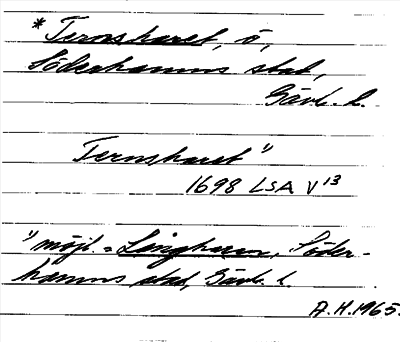 * Ternskaret, ö,
Söderhamns stad,
Gävb. l.
Ternskaret"
1698 LSA V 13
"möjl. = Långharn, Söder-
hamns stad, Gävb. l.
A.H. 1965.